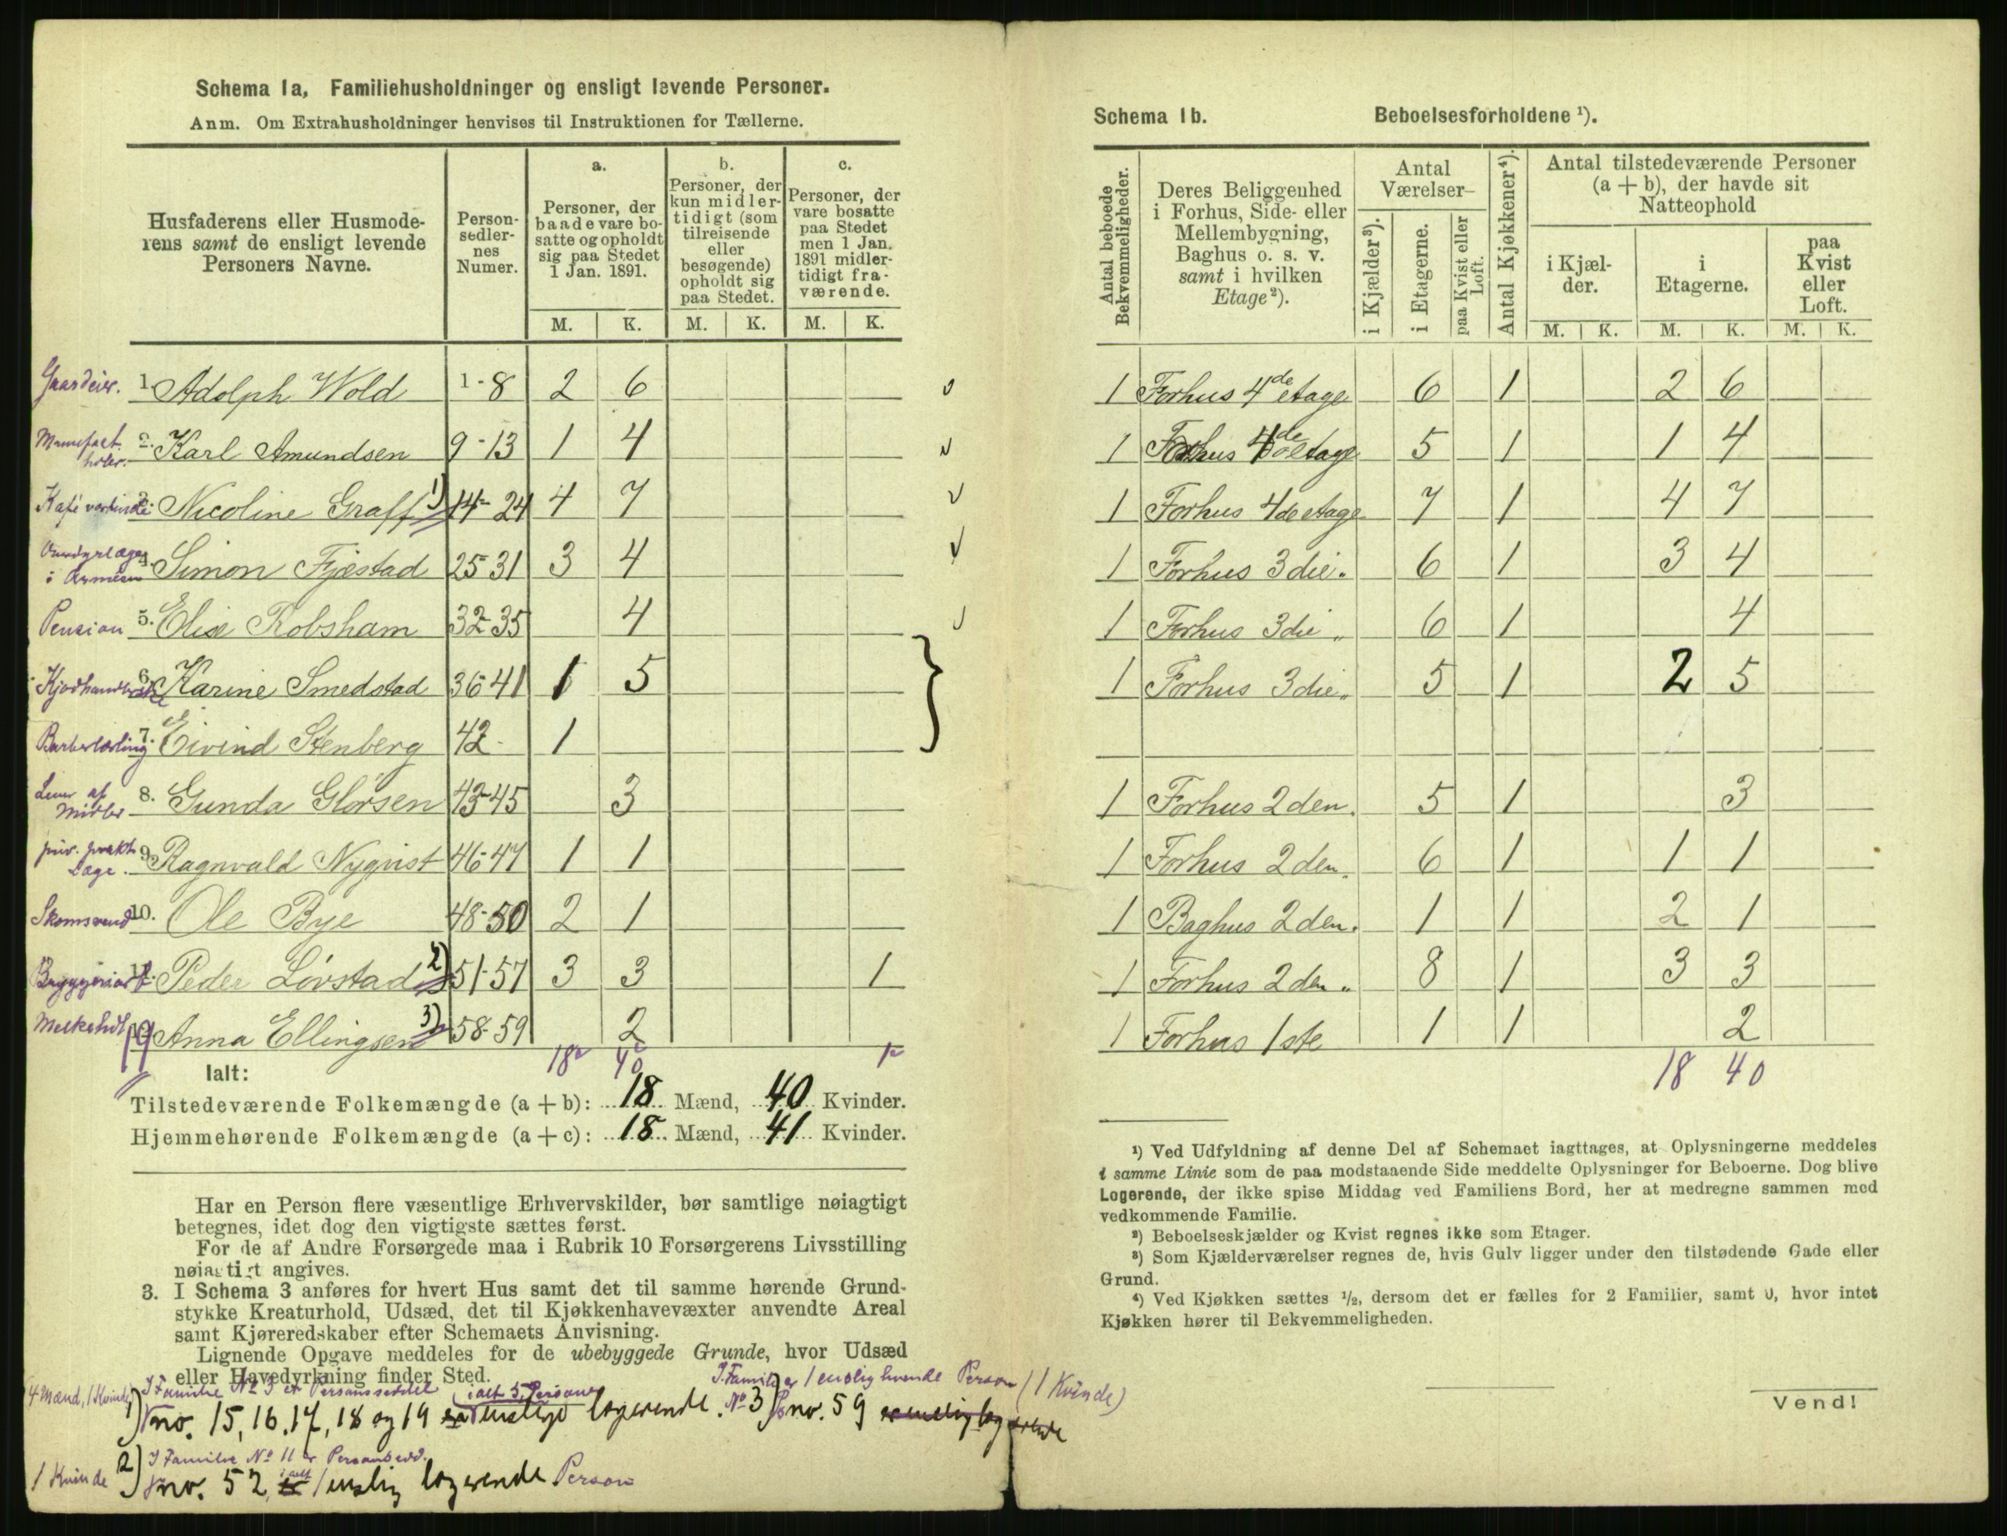 Schema 1a, Familiehusholdninger og ensligt levende Personer.
Anm. Om Extrahusholdninger henvises til Instruktionen for Tællerne.
Husfaderens eller Husmoderens samt de ensligt levende Personers Navne.
Personsedlernes Numer.
a. Personer, der baade vare bosatte og opholdt sig paa Stedet 1 Jan. 1891.
b. Personer, der kun midlertidigt (som tilreisende eller besøgende) opholdt sig paa Stedet.
c. Personer, der vare bosatte paa Stedet men 1 Jan. 1891 midlertidigt fraværende.
M. K. M. K. M. K.
Gaardeier. 1. Adolph Wold 1-8 2 6
2. Karl Amundsen 9-13 1 4
3. Nicoline Graff 1) 14-24 4 7
4. Simon Fjestad 25-31 3 4
Pension 5. Elise Robsham 32-35 4
6. Karine Smedstad 36-41 1 5
Barberlærling 7. Eivind Stenberg 42 1
Lever af Midler 8. Gunda Glørsen 43-45 3
priv. prakt. Læge. 9. Ragnvald Nyqvist 46-47 1 1
Skomsvend 10. Ole Bye 48-50 2 1
11. Peder Løvstad 2) 51-57 3 3 1
Anna Ellingsen 3) 58-59 2
18 40 1
Ialt:
Tilstedeværende Folkemængde (a + b): 18 Mænd, 40 Kvinder.
Hjemmehørende Folkemængde (a + c): 18 Mænd, 41 Kvinder.
Har en Person flere væsentlige Erhvervskilder, bør samtlige nøiagtigt
betegnes, idet dog den vigtigste sættes først.
For de af Andre Forsørgede maa i Rubrik 10 Forsørgerens Livsstilling
nøiagtigt angives.
3. I Schema 3 anføres for hvert Hus samt det til samme hørende Grund-
stykke Kreaturhold, Udsæd, det til Kjøkkenhavevæxter anvendte Areal
samt Kjøreredskaber efter Schemaets Anvisning.
Lignende Opgave meddeles for de ubebyggede Grunde, hvor Udsæd
eller Havedyrkning finder Sted.
4 Mænd, 1 Kvinde 1) I Familie No 3 er Personseddel
no. 15, 16, 17, 18 og 19 ialt 5 Personer enslige logerende.
3) I Familie No er 1 enslig levende Person (1 Kvinde)
no. 59
1 Kvinde 2) I Familie No 11 er Personsedd.
no. 52, ialt 1 enslig logerende Person
Schema 1b. Beboelsesforholdene ¹).
Antal beboede Bekvemmeligheder.
Deres Beliggenhed i Forhus, Side- eller Mellembygning, Baghus o. s. v. samt i hvilken Etage ²).
Antal Værelser
i Kjælder ³).
i Etagerne.
paa Kvist eller Loft.
Antal Kjøkkener ⁴).
Antal tilstedeværende Personer (a + b), der havde sit Natteophold
i Kjælder.
i Etagerne.
paa Kvist eller Loft.
M. K. M. K. M. K.
1 Forhus 4de etage 6 1 2 6
1 Forhus 4de etage 5 1 1 4
1 Forhus 4de etage 7 1 4 7
1 Forhus 3die „ 6 1 3 4
1 Forhus 3die „ 6 1 4
1 Forhus 3die „ 5 1 2 5
1 Forhus 2den. 5 1 3
1 Forhus 2den. 6 1 1 1
1 Baghus 2den. 1 1 2 1
1 Forhus 2den „ 8 1 3 3
1 Forhus 1ste 1 1 2
18 40
¹) Ved Udfyldning af denne Del af Schemaet iagttages, at Oplysningerne meddeles
i samme Linie som de paa modstaaende Side meddelte Oplysninger for Beboerne. Dog blive
Logerende, der ikke spise Middag ved Familiens Bord, her at medregne sammen med
vedkommende Familie.
²) Beboelseskjælder og Kvist regnes ikke som Etager.
³) Som Kjælderværelser regnes de, hvis Gulv ligger under den tilstødende Gade eller
Grund.
⁴) Ved Kjøkken sættes ½, dersom det er fælles for 2 Familier, samt 0, hvor intet
Kjøkken hører til Bekvemmeligheden.
Vend!